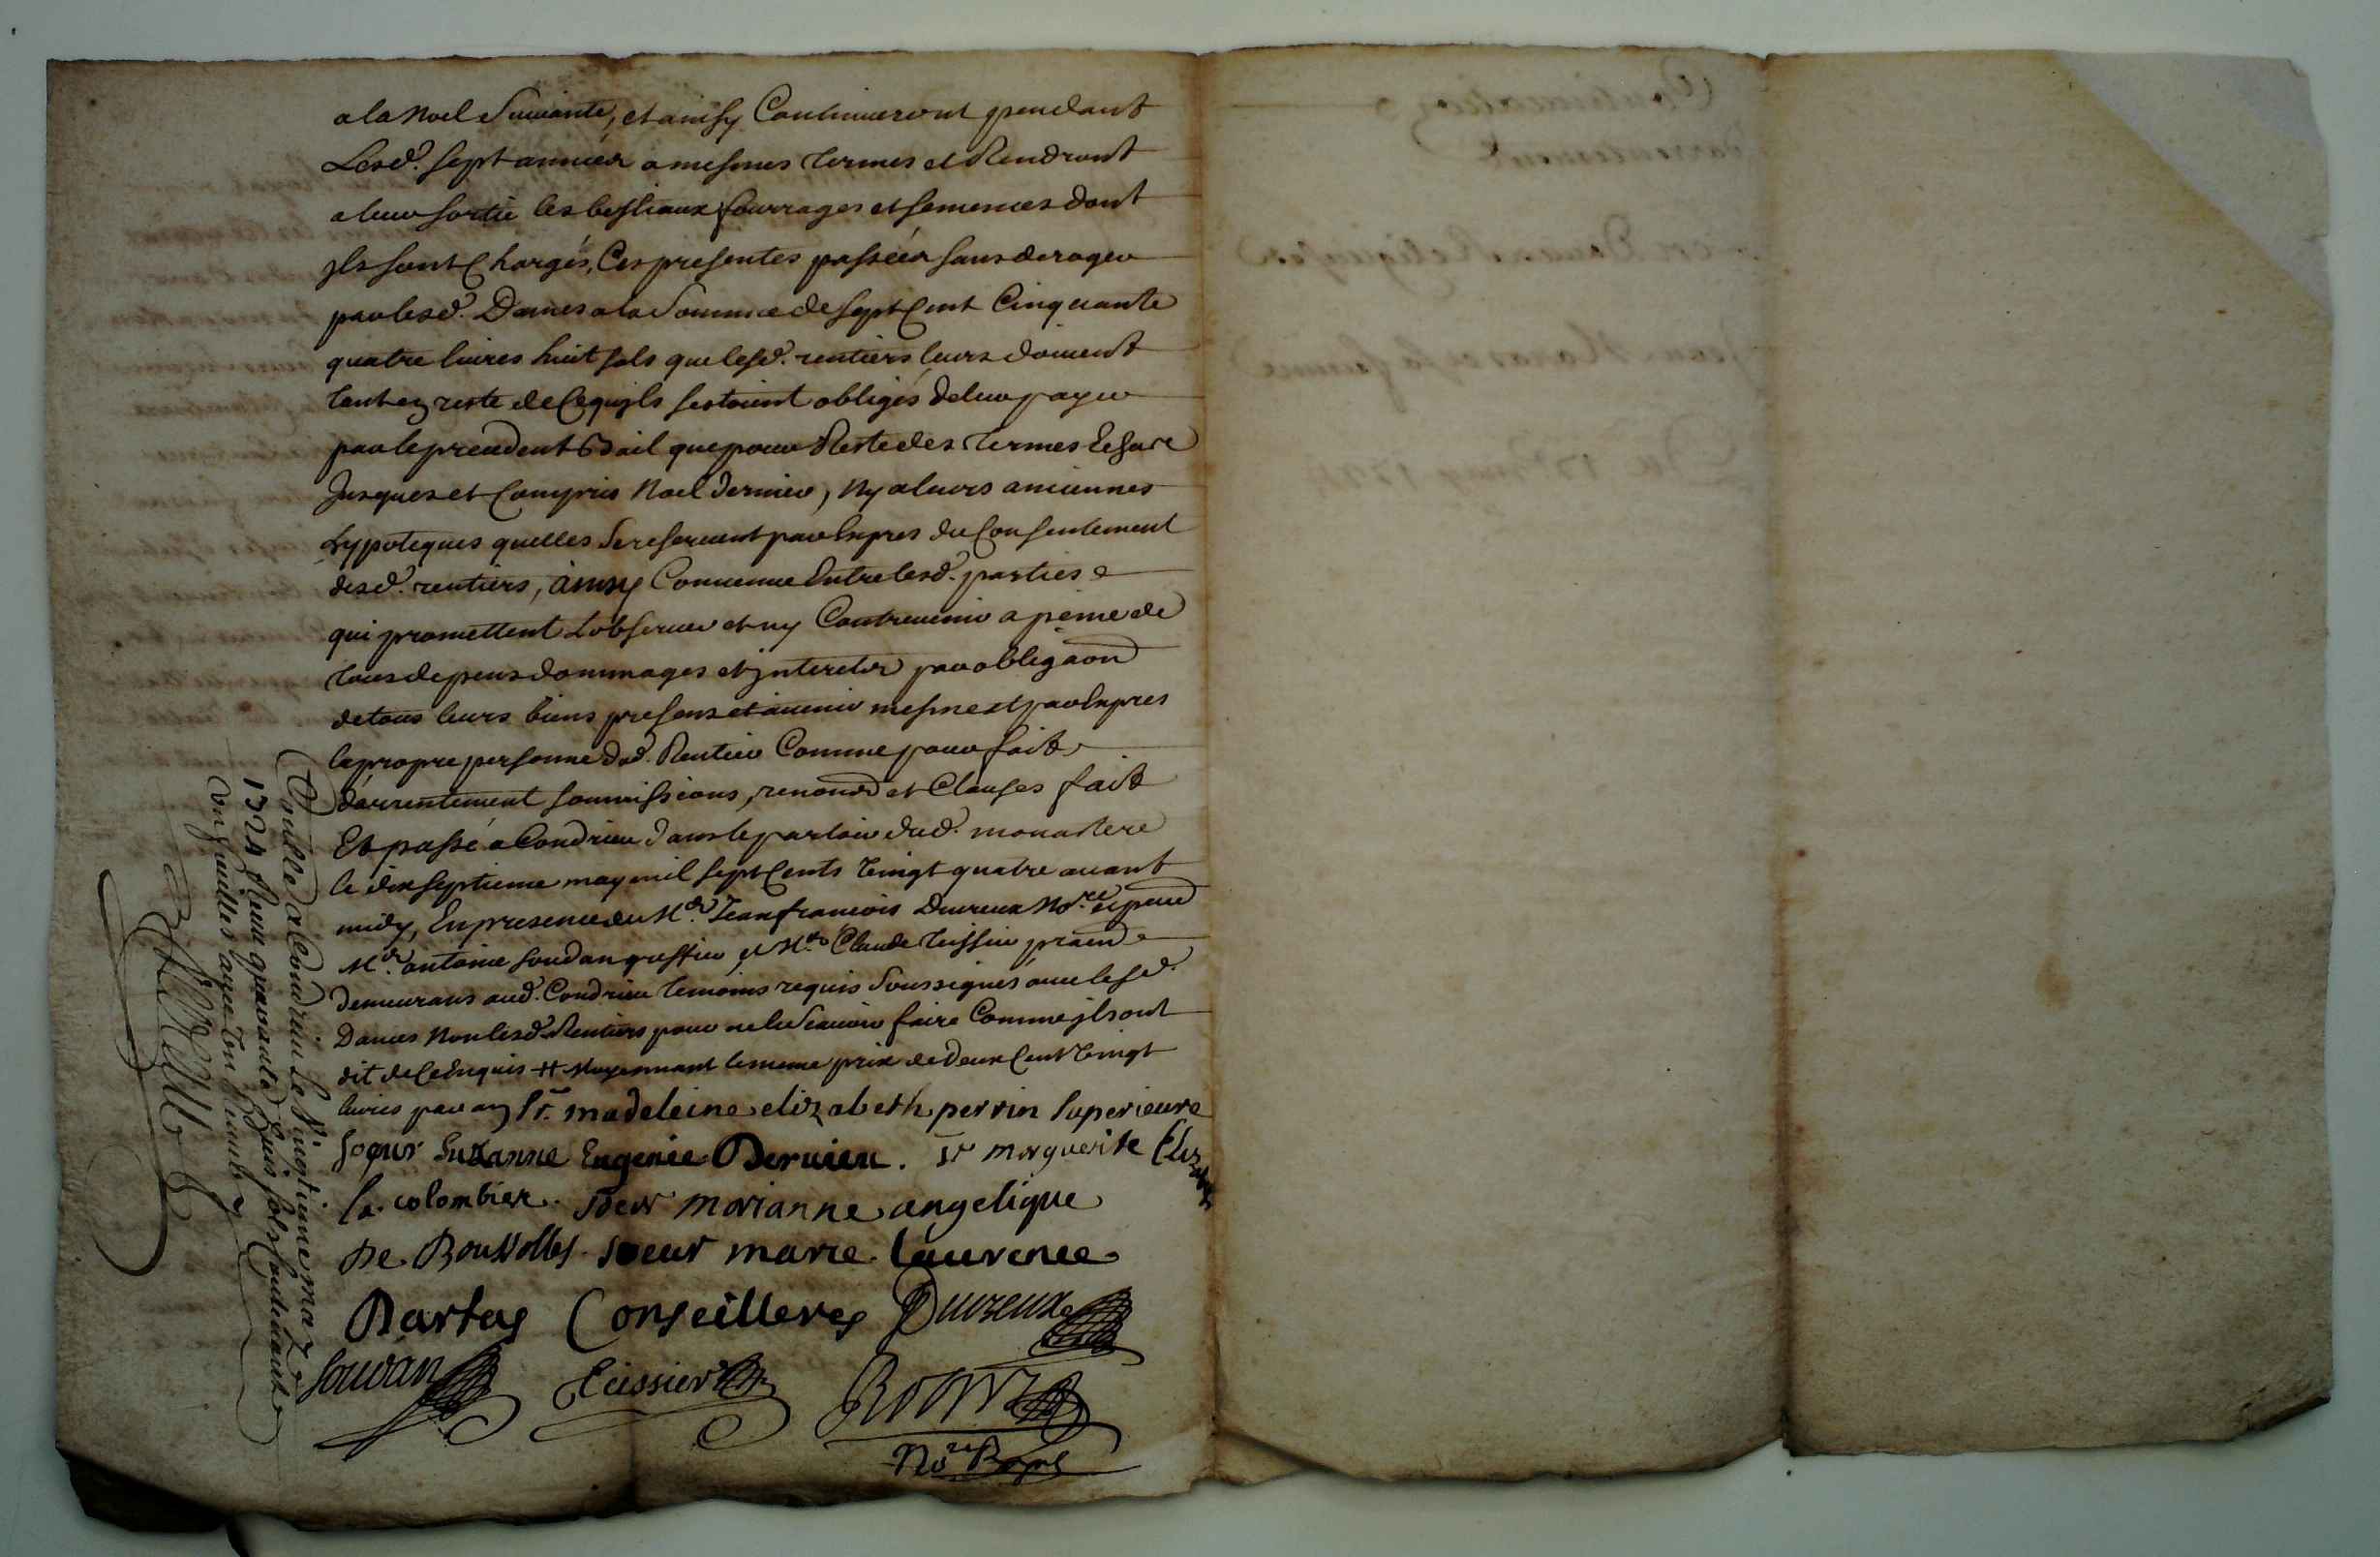 a la Noel Suiuante, et ainsy Continueront pendant
Lesd. sept années a mesmes termes et Rendront
a leur sortie les bestiaux fourrages et semences dont
jls sont Chargés, Ces presentes passées sans deroger
par lesd. Dames a la Somme de sept Cent Cinquante
quatre liures huit sols que lesd. rentiers leurs doiuent
tant en reste de Ce qujls sestoient obligés de leur payer
par le precedent Bail que pour Reste des termes
Jusques et Compris Noel dernier, Ny a leurs anciennes
hypoteques quelles Se reseruent par Expres du Consentement
desd. rentiers, ainsy Conuenue Entre lesd. parties
qui promettent Lobseruer et ny Contreuenir a peine de
tous depens dommages et jnterets par obligaon
de tous leurs biens presens et auenir mesme et par Expres
le propre personne dud. Rentier Comme pour fait
darrentement soumissions, renond et Clauses fait
Et passé a Condrieu dans le parloir dud. monastere
le dix septieme may mil sept Cents Vingt quatre auant
midy, En presence de Mr. Jean francois Duvreux Nore
Mr. antoine soudan greffier et Me. Claude teissier
demeurans aud. Condrieu temoins requis Soussignés auec lesd.
Dames Non lesd. Rentiers pour ne le Scauoir faire Comme jls ont
dit de Ce Enquis # Moyennant le meme prix de Deux Cent Vingt
liures par an Sr. madeleine elizabeth perrin superieure
soeur suzanne Eugenie Deruieu. sr marguerite Elizabeth
la colombier. soeur marianne angelique
De Boussolles. soeur marie laurence
Dartas Conseilleres Duvreux
souдan Teissier
Nore Royal
Controllé a Condrieu le Vingtieme may
1724 Reçu quarante huit sols